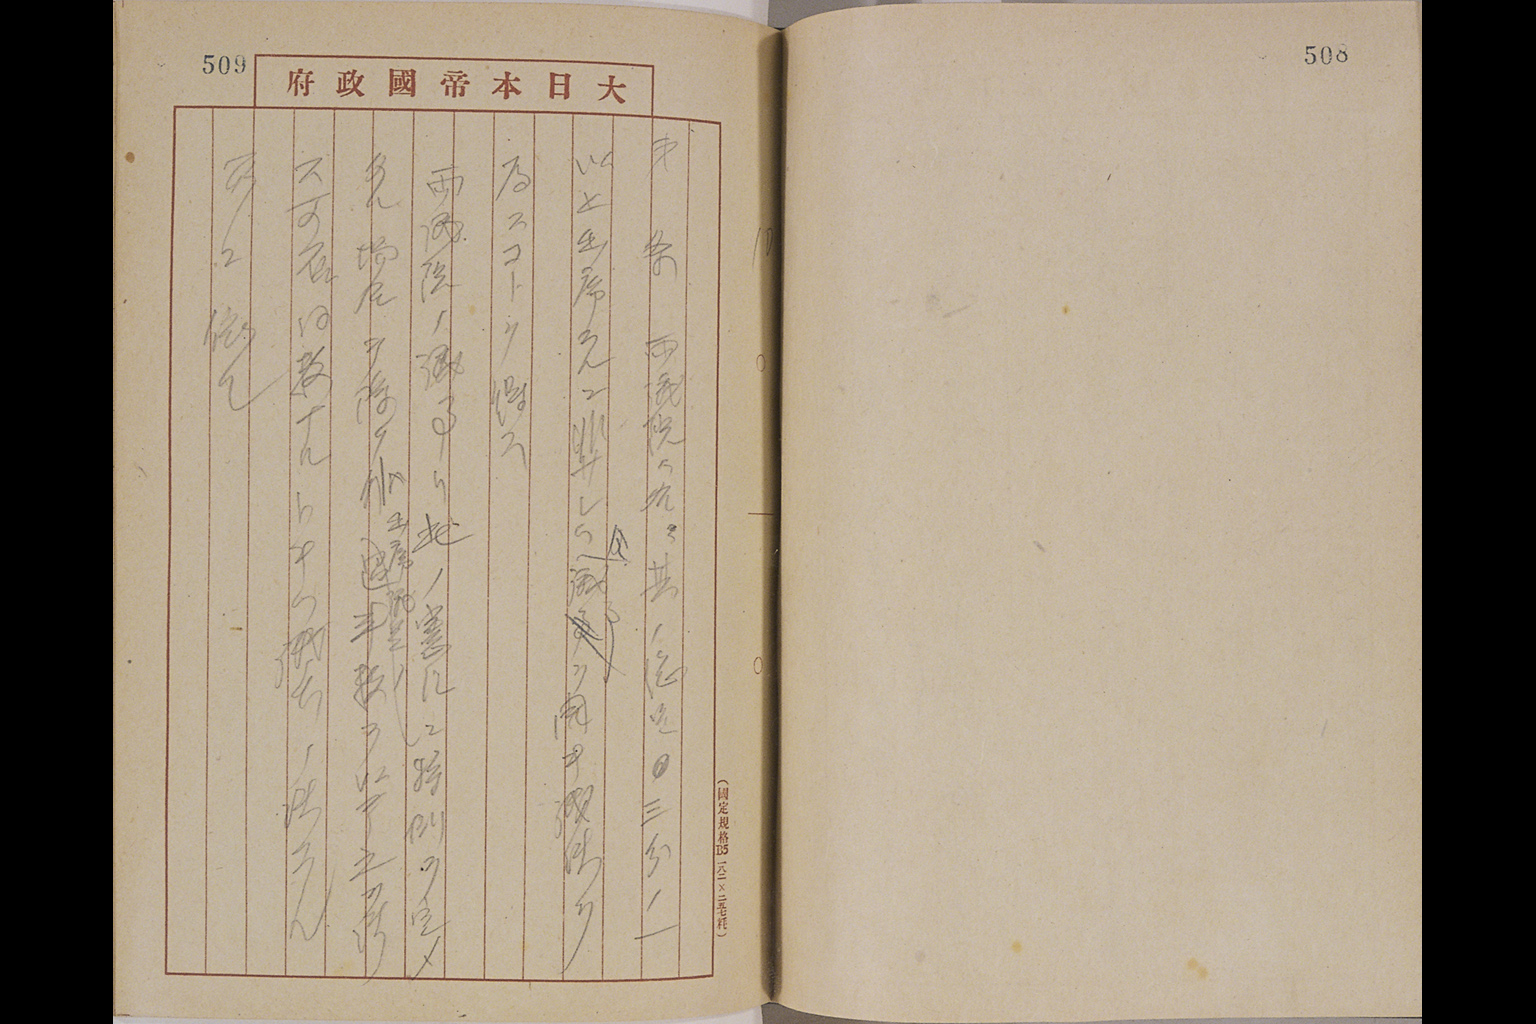 508
509
大日本帝國政府
第 条 両議院ハ各々其ノ総員ノ三分ノ一
以上出席スルニ非サレハ会議ヲ開キ議決ヲ
為スコトヲ得ス
両議院ノ議事ハ此ノ憲法ニ特例ヲ定メ
タル場合ヲ除ク外出席議員ノ過半数ヲ以テ之ヲ決
ス可否同数ナルトキハ議長ノ決スル
所ニ依ル
(國定規格B5 一八二×二五七粍)